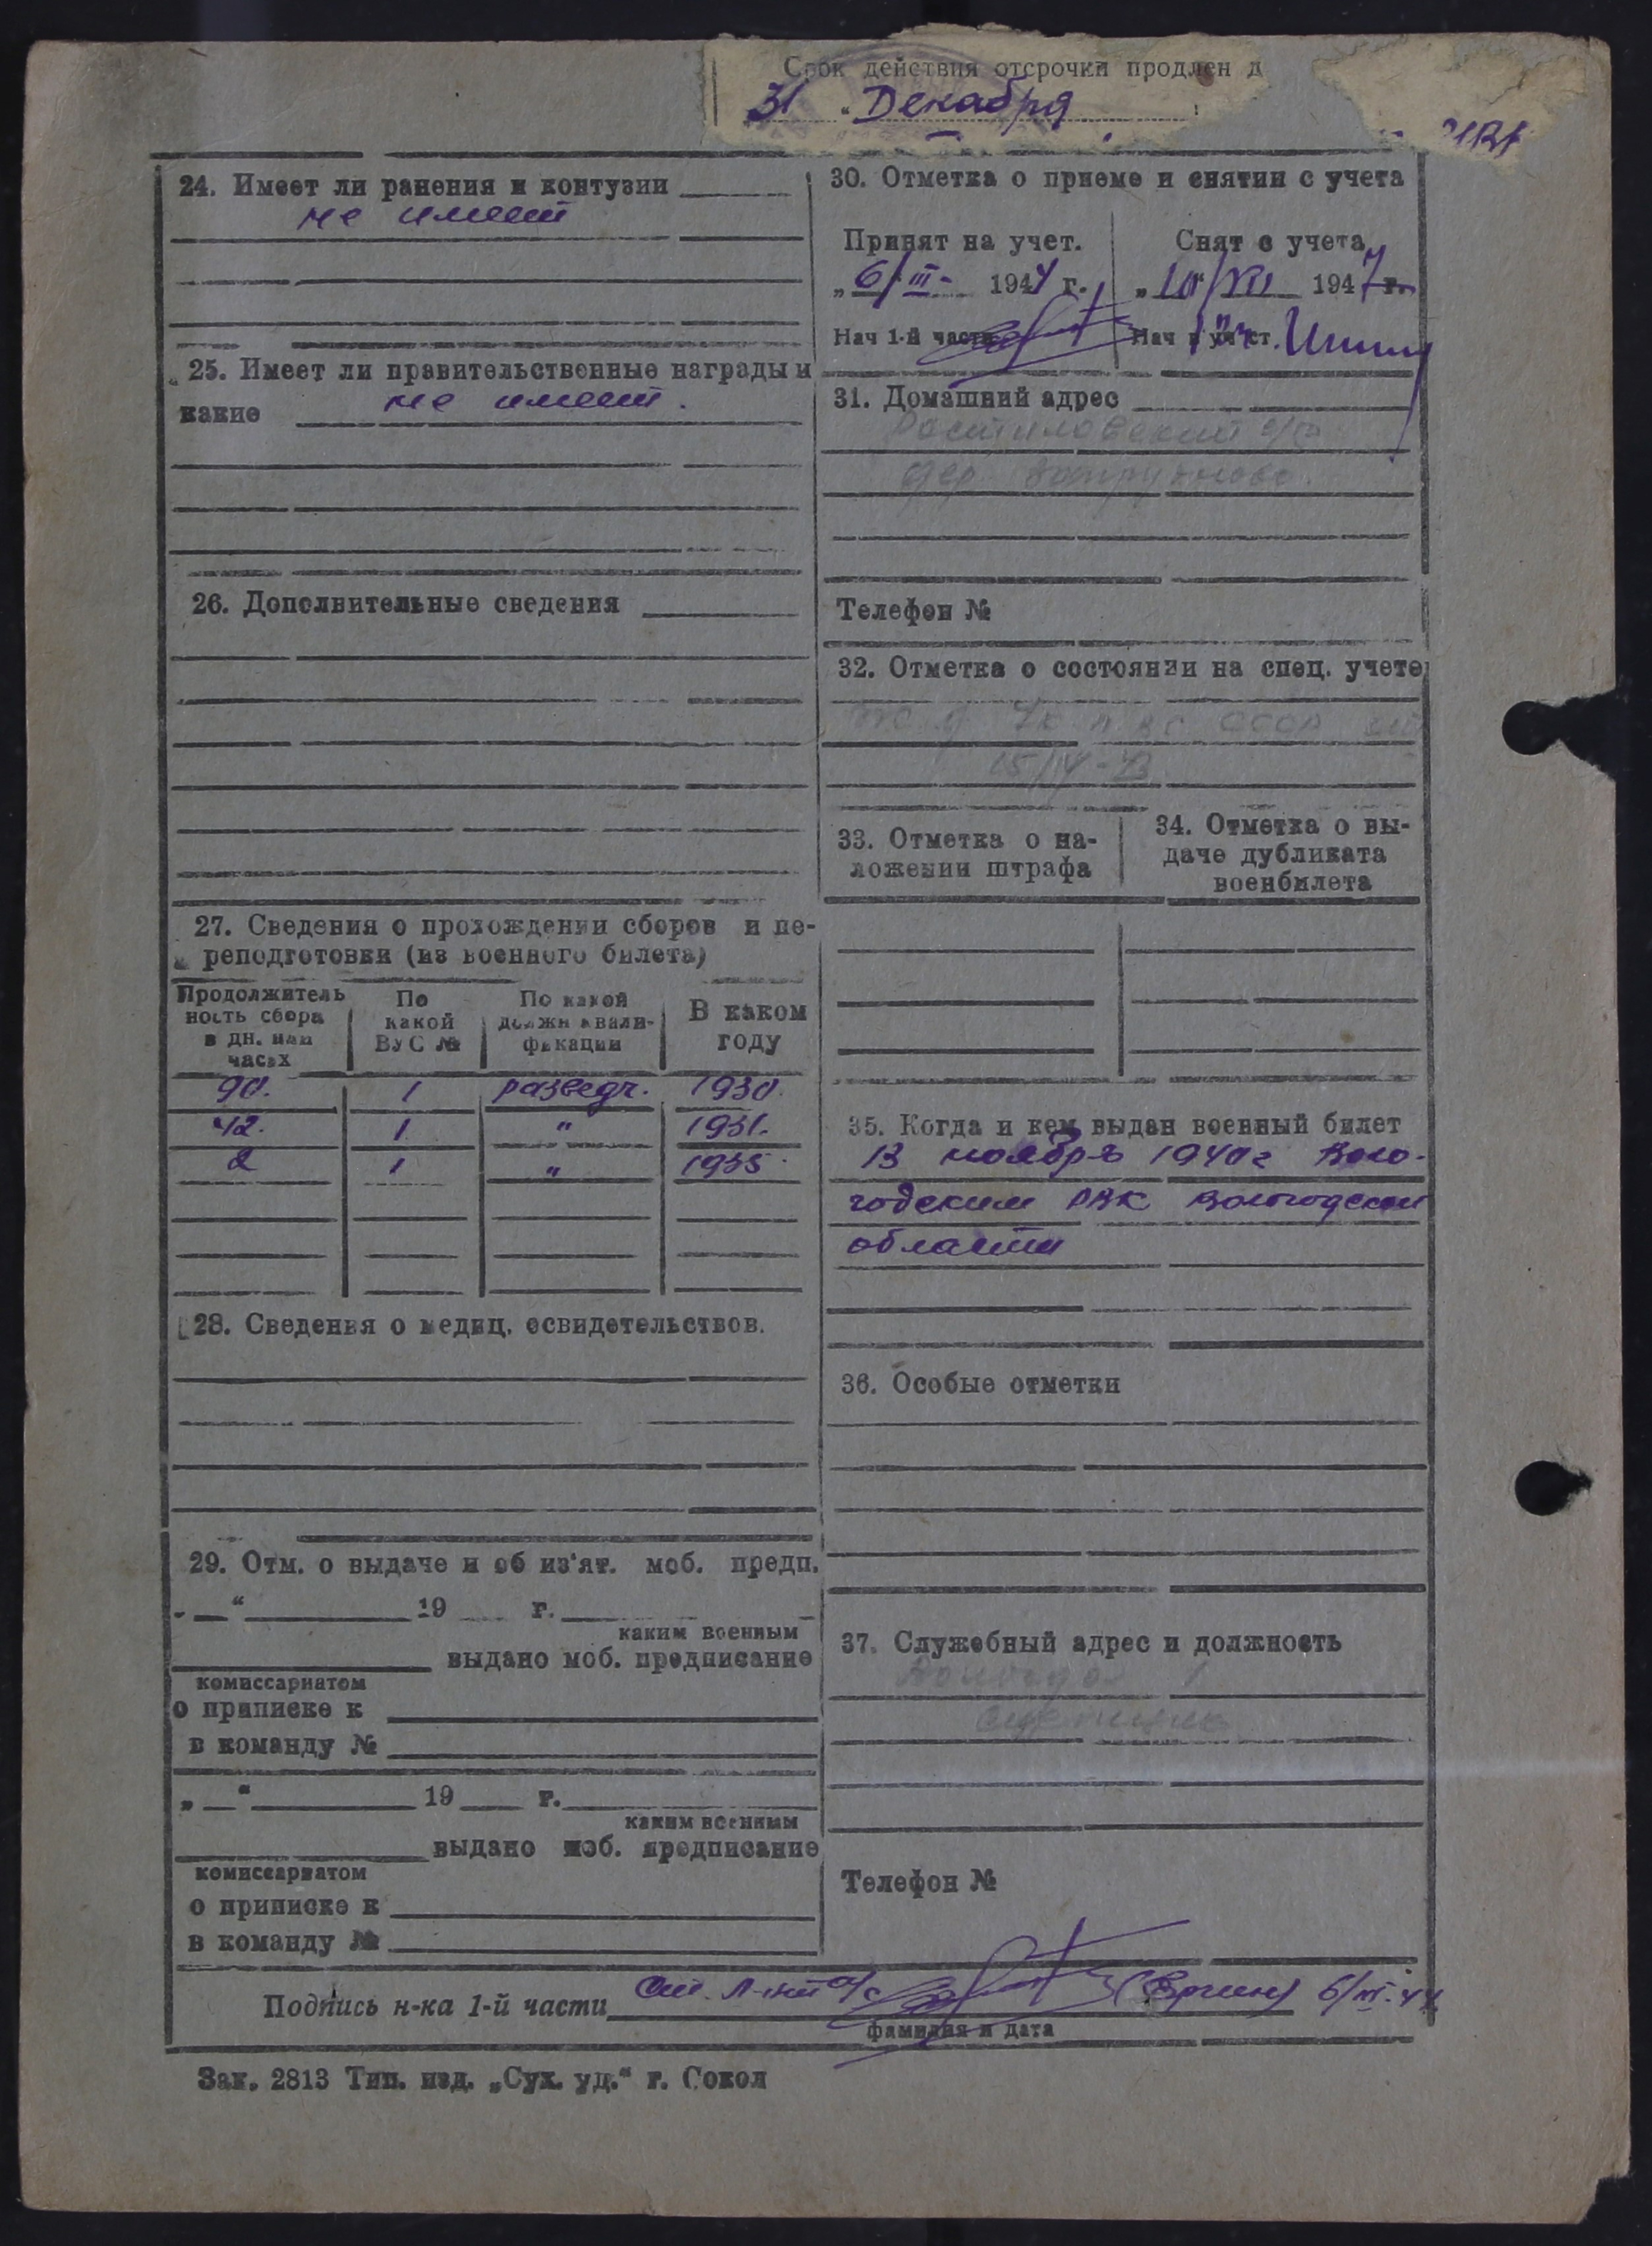 Срок действия отсрочки продлен д
31 " Декабря
24. Имеет ли ранения и контузии
не имеет
25. Имеет ли правительственные награды и
какие не имеет.
26. Дополнительные сведения
27. Сведения о прохождении сборов и пе-
реподготовки (из военного билета)
Продолжитель
ность сбора
в дн. или
часах
По
какой
ВУС №
По какой
должн квали-
фикации
В каком
году
90. 1 разведч. 1930.
42. 1 " 1931.
2 1 " 1935.
28. Сведения о медиц. освидетельствов.
29. Отм. о выдаче и об из'ят. моб. предп.
„ “ 19 г.
каким военным
выдано моб. предписание
комиссариатом
о приписке к
в команду №
„ “ 19 г.
каким военным
выдано моб. предписание
комиссариатом
о приписке к
в команду №
30. Отметка о приеме и снятии с учета
Принят на учет.
„6/III- 1944 г.
Нач 1-й части
Снят с учета
1947 г.
Нач
31. Домашний адрес
дер.
Телефон №
32. Отметка о состоянии на спец. учете
СССР
33. Отметка о на-
ложении штрафа
34. Отметка о вы-
даче дубликата
военбилета
35. Когда и кем выдан военный билет
13 ноября 1940 г Воло-
годским РВК Вологодской
области
36. Особые отметки
37. Служебный адрес и должность
Вологда 1
Телефон №
Подпись н-ка 1-й части Ст. Л-нт а/с 6/III-44
фамилия и дата
Зак. 2813 Тип. изд. „Сух. уд.“ г. Сокол